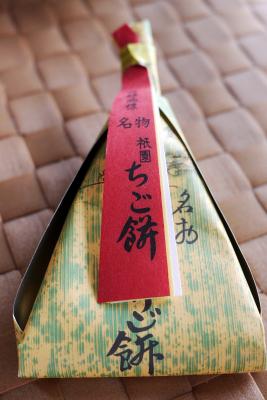 名物
祇園
ちご餅
名物
ちご餅